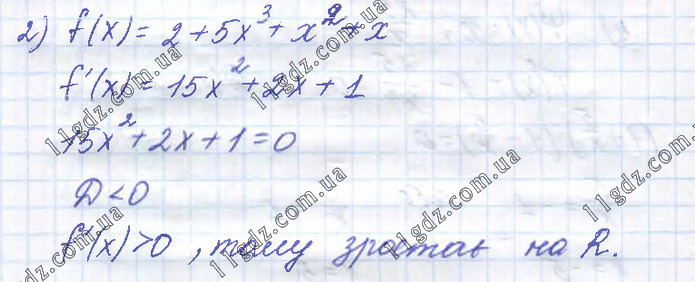 2) f(x) = 2 + 5x³ + x² + x
f'(x) = 15x² + 2x + 1
15x² + 2x + 1 = 0
D < 0
f'(x) > 0, тому зростає на R.
11gdz.com.ua
11gdz.com.ua
11gdz.com.ua
11gdz.com.ua
11gdz.com.ua
11gdz.com.ua